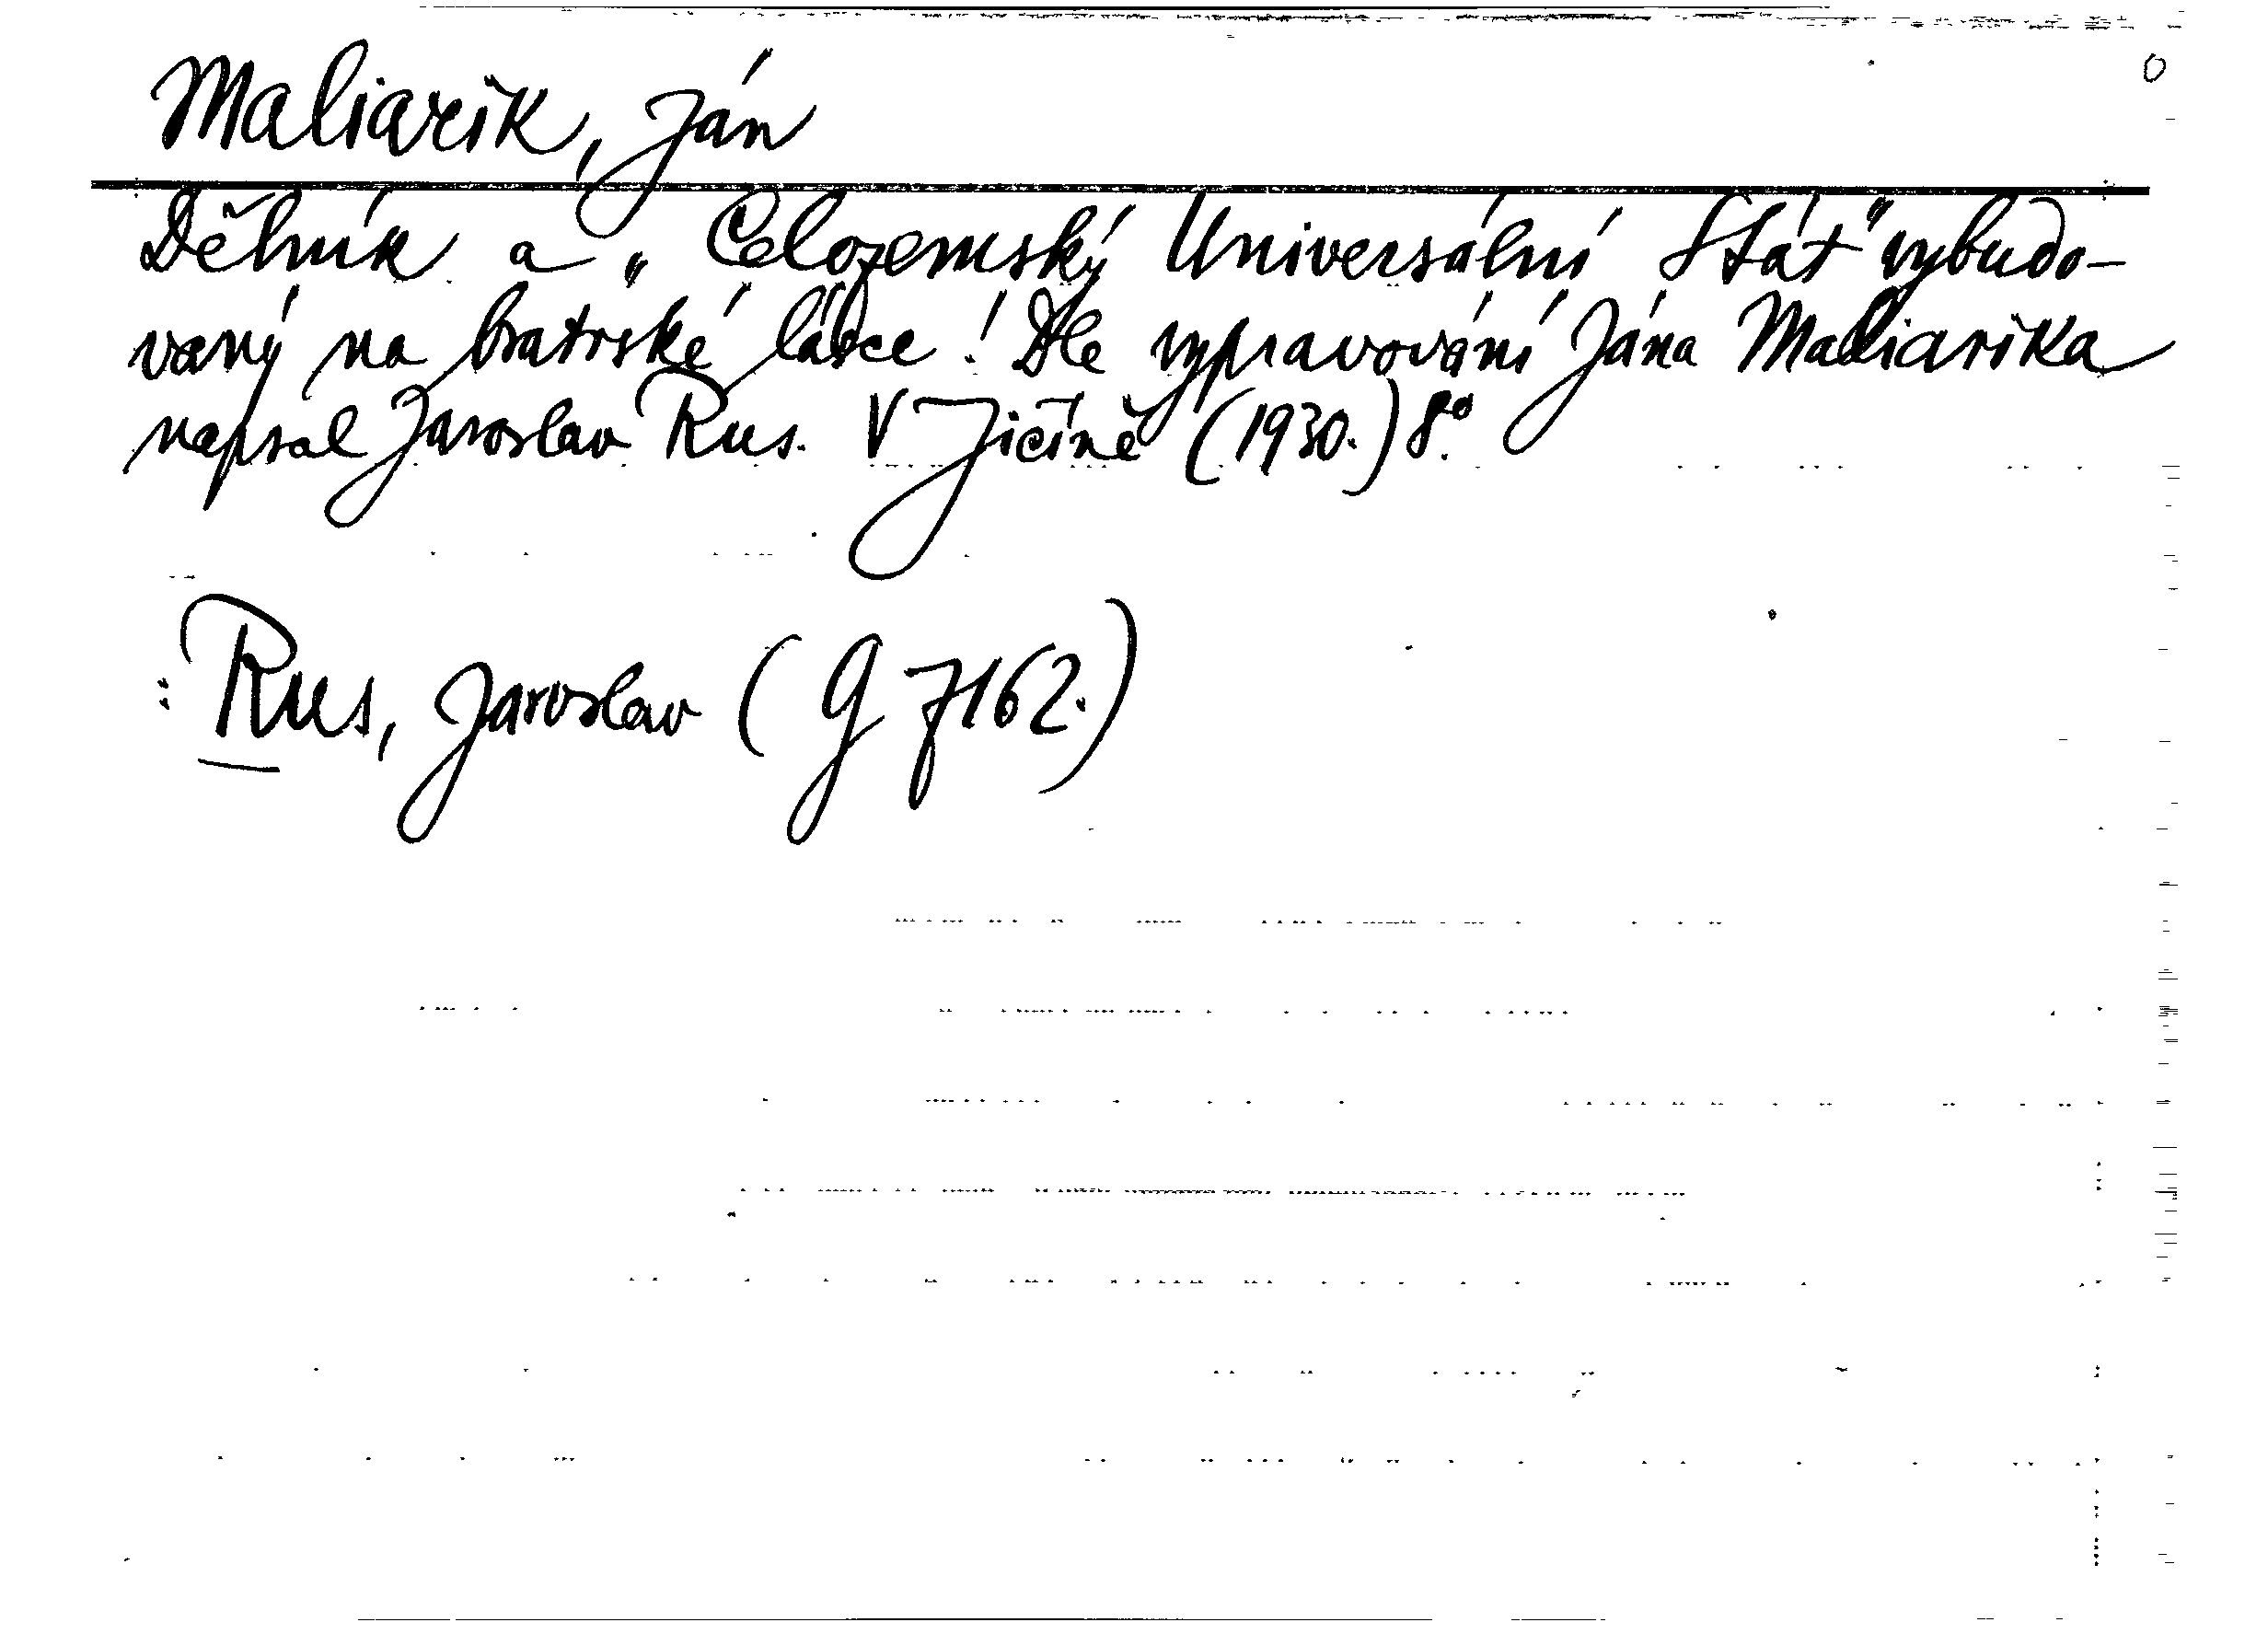 0
Maliarik, Ján
Dělník a „Celozemský Universální Stát" vybudo-
vaný na bratrské lásce! Dle vypravování Jána Maliarika
napsal Jaroslav Rus. V Jičíně (1930.) 8°.
: Rus, Jaroslav (g 7162.)